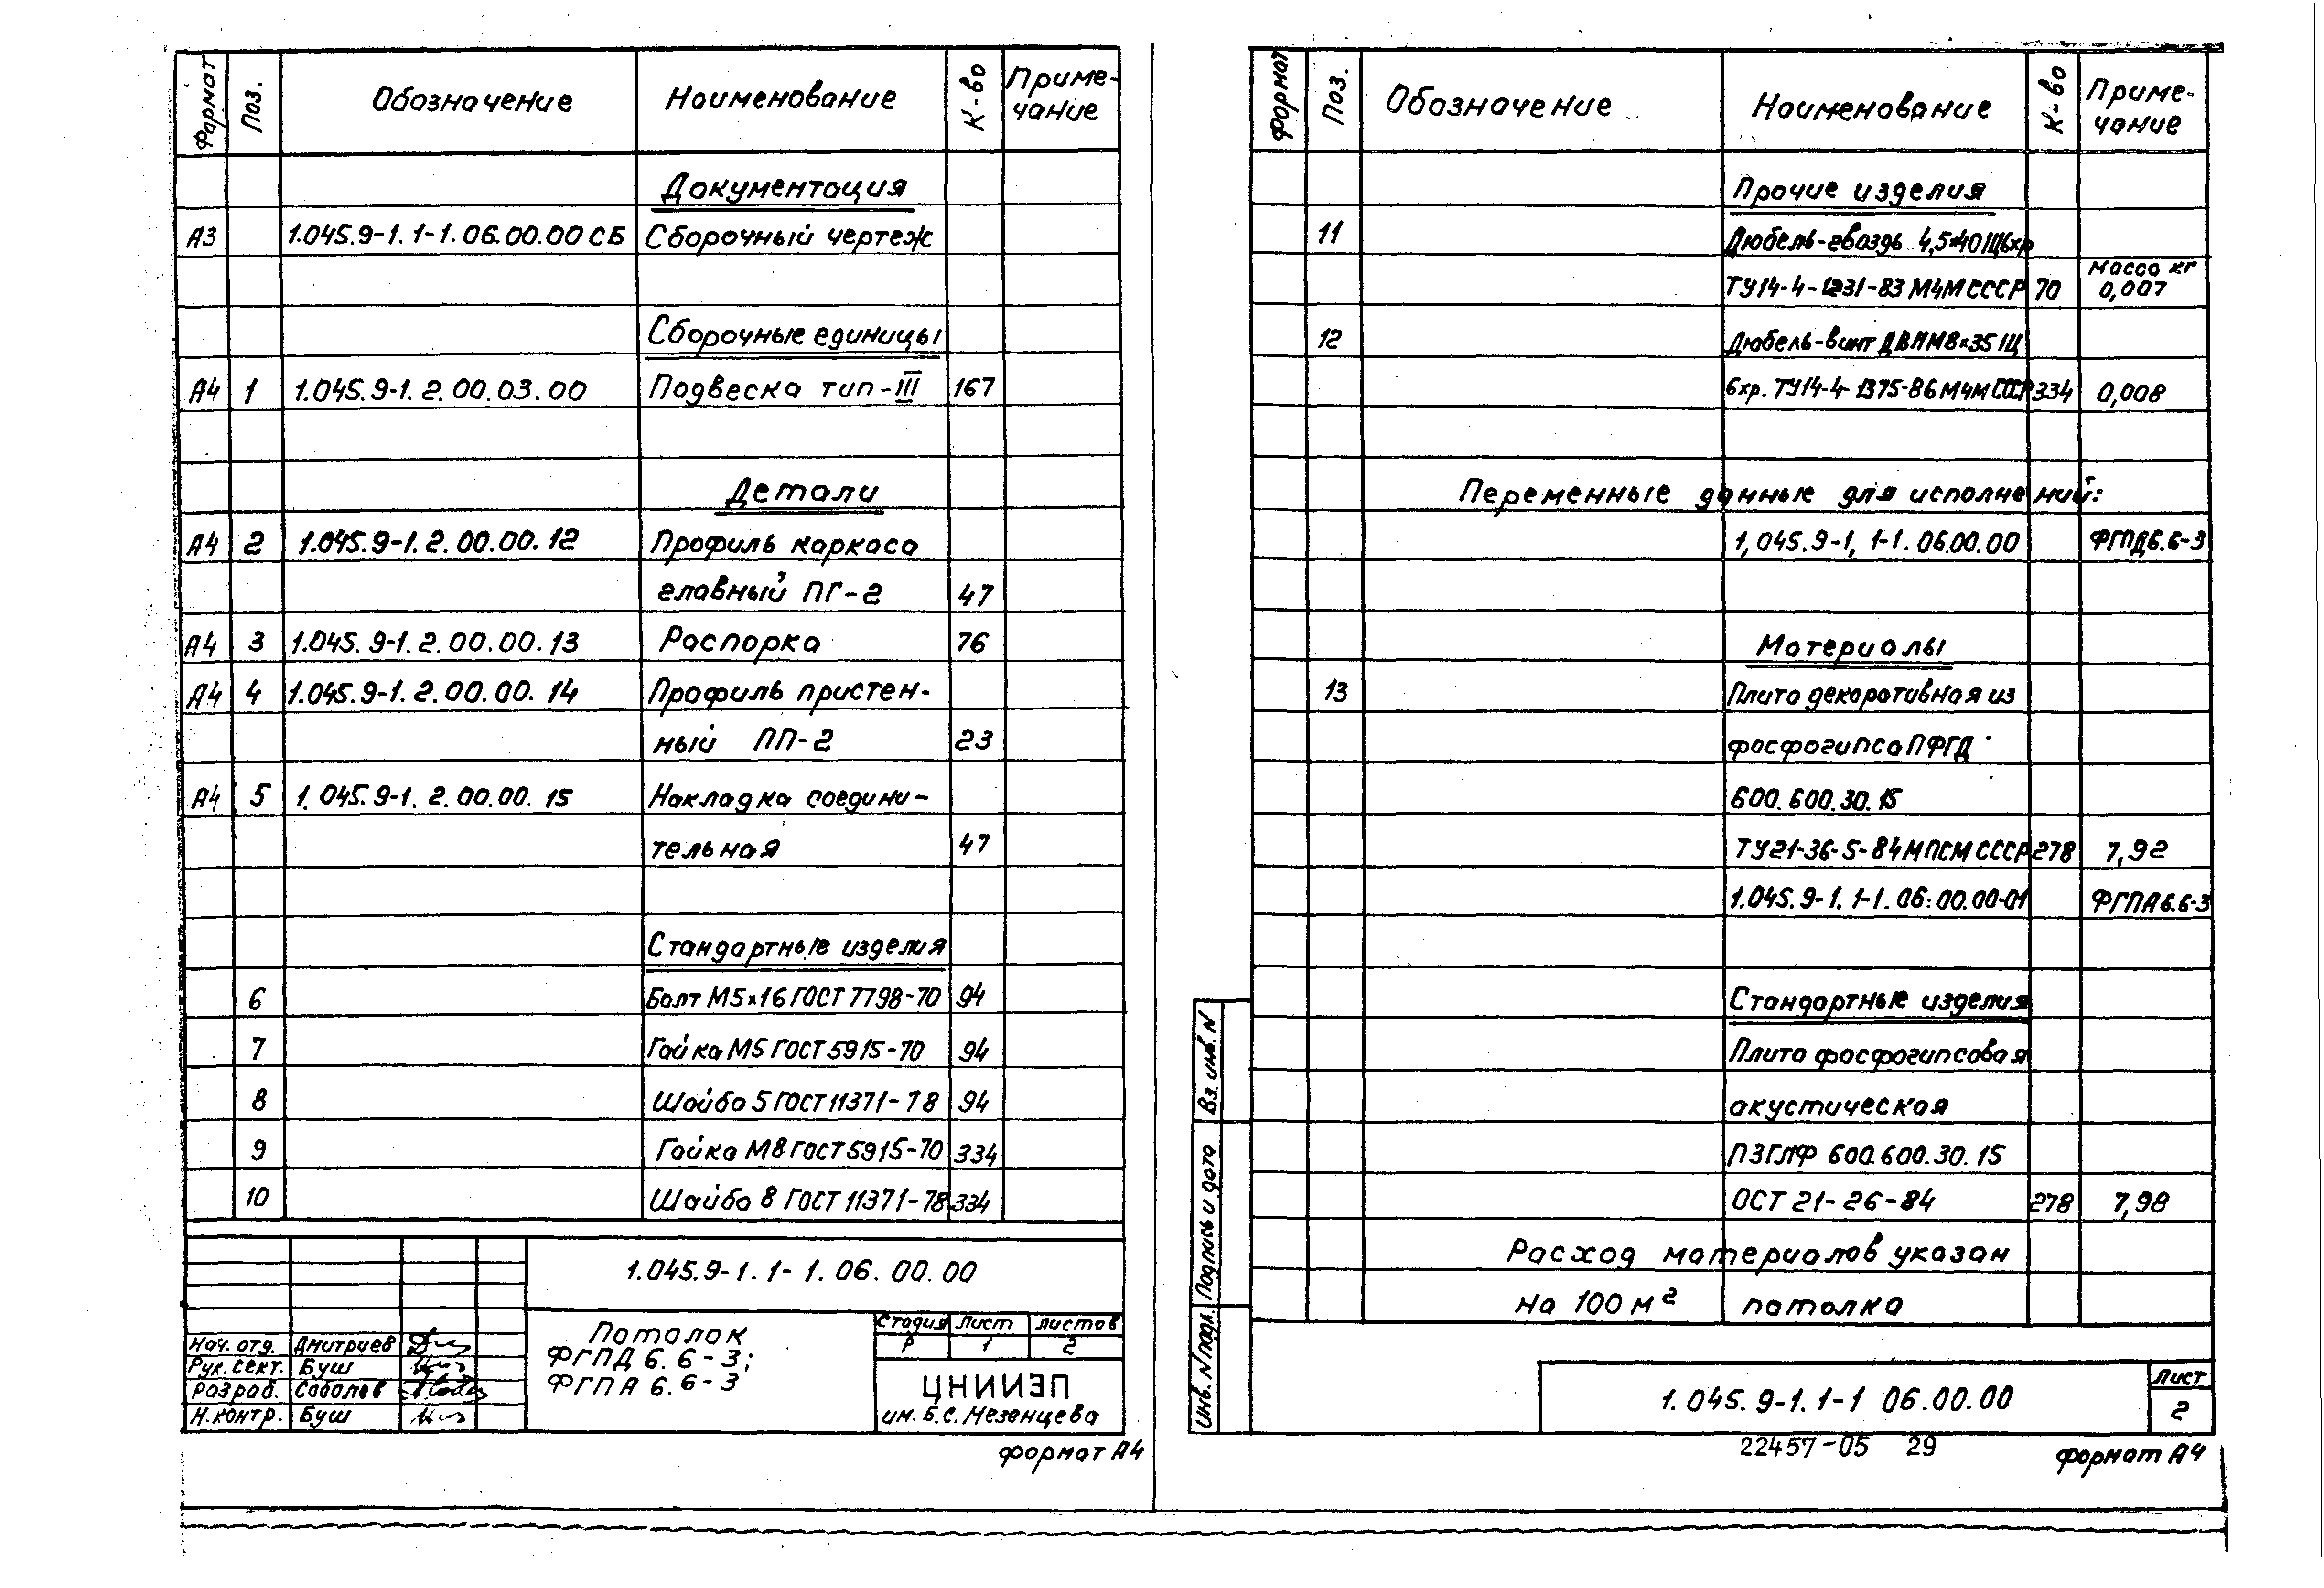 Формат Поз. Обозначение Наименование К-во Приме-
чание
Документация
А3 1.045.9-1.1-1.06.00.00 СБ Сборочный чертеж
Сборочные единицы
А4 1 1.045.9-1.2.00.03.00 Подвеска тип-III 167
Детали
А4 2 1.045.9-1.2.00.00.12 Профиль каркаса
главный ПГ-2 47
А4 3 1.045.9-1.2.00.00.13 Распорка 76
А4 4 1.045.9-1.2.00.00.14 Профиль пристен-
ный ПП-2 23
А4 5 1.045.9-1.2.00.00.15 Накладка соедини-
тельная 47
Стандартные изделия
6 Болт М5×16 ГОСТ 7798-70 94
7 Гайка М5 ГОСТ 5915-70 94
8 Шайба 5 ГОСТ 11371-78 94
9 Гайка М8 ГОСТ 5915-70 334
10 Шайба 8 ГОСТ 11371-78 334
1.045.9-1.1-1.06.00.00
Потолок
ФГПД 6.6-3;
ФГПА 6.6-3
Стадия Лист Листов
Р 1 2
Нач. отд. Дмитриев
Рук. сект. Буш
Разраб. Соболев
Н.контр. Буш
ЦНИИЭП
им. Б.С. Мезенцева
формат А4
Формат Поз. Обозначение Наименование К-во Приме-
чание
Прочие изделия
11 Дюбель-гвоздь 4,5×40 Ц6хр
ТУ14-4-1231-83 МЧМ СССР 70 Масса кг
0,007
12 Дюбель-винт ДВМ М8×35 Ц
6хр. ТУ14-4-1375-86 МЧМ СССР 334 0,008
Переменные данные для исполнений:
1,045.9-1,1-1.06.00.00 ФГПД6.6-3
Материалы
13 Плита декоративная из
фосфогипса ПФГД
600.600.30.15
ТУ21-36-5-84 МПСМ СССР 278 7,92
1.045.9-1.1-1.06.00.00-01 ФГПА6.6-3
Стандартные изделия
Плита фосфогипсовая
акустическая
ПЗГЛФ 600.600.30.15
ОСТ 21-26-84 278 7,98
Расход материалов указан
на 100 м² потолка
Вз. инв. N
Подпись и дата
Инв. N подл.
1.045.9-1.1-1 06.00.00
Лист
2
22457-05 29
формат А4